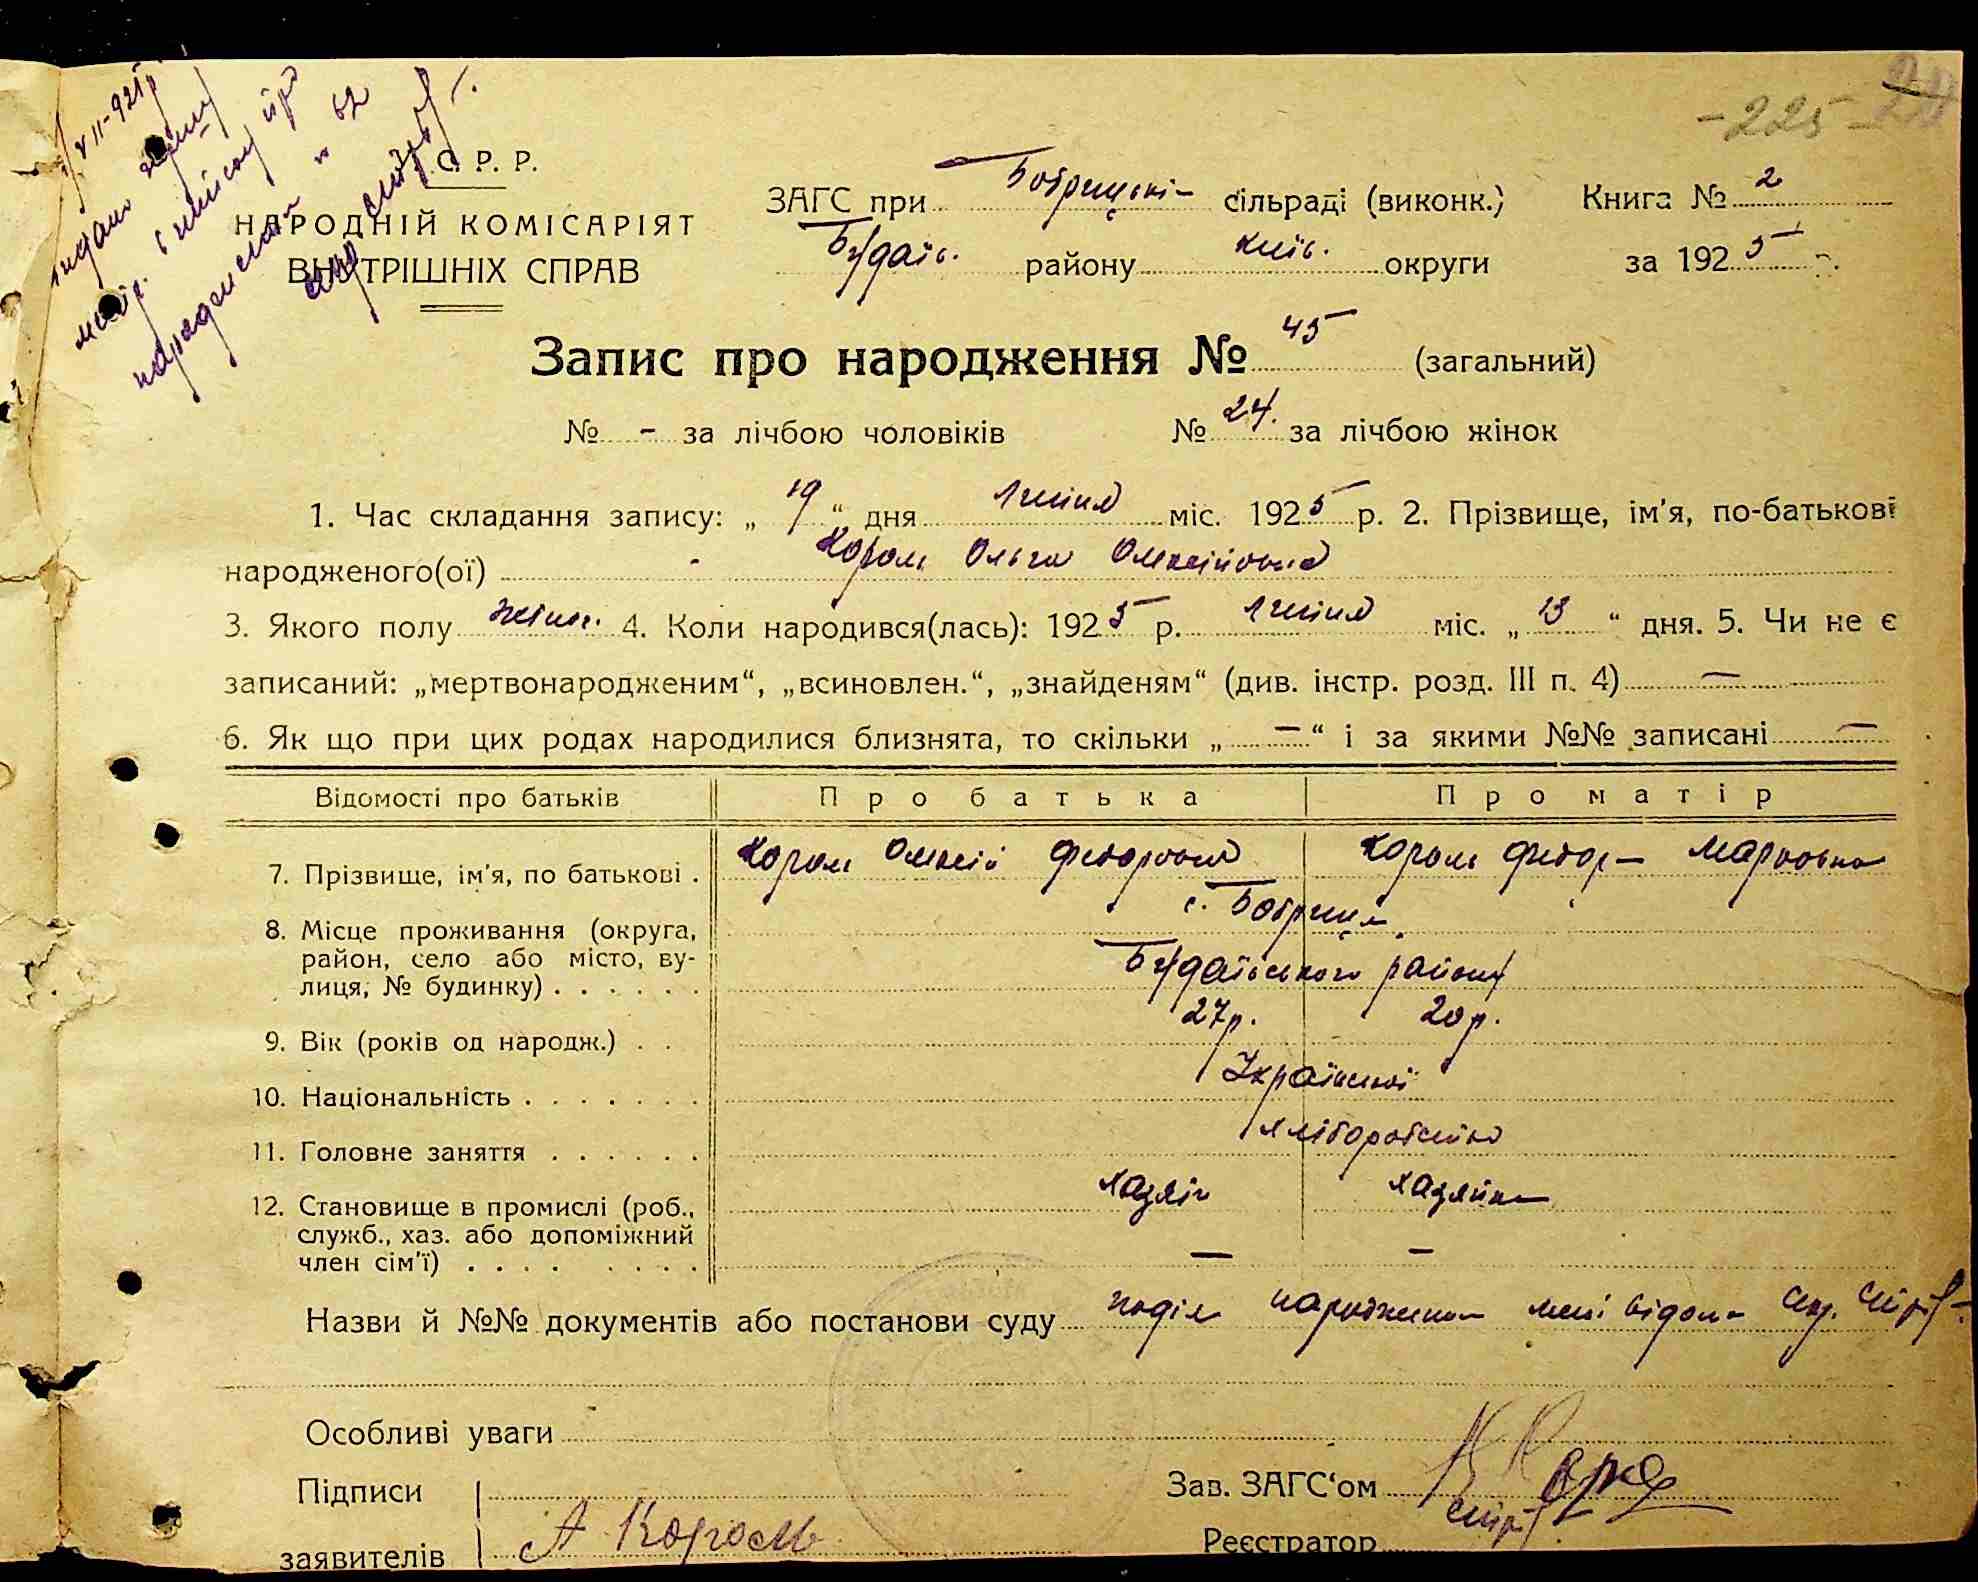 - 225 -
С. Р. Р.
НАРОДНІЙ КОМІСАРІЯТ
ВНУТРІШНІХ СПРАВ
ЗАГС при Бобрицькі- сільраді (виконк.) Книга № 2
Будаїв. району київ. округи за 1925 р.
Запис про народження № 45 (загальний)
№ - за лічбою чоловіків № 24. за лічбою жінок
1. Час складання запису: „ 19 “ дня липня міс. 1925 р. 2. Прізвище, ім'я, по-батькові
народженого(ої) Король Ольга Олексійовна
3. Якого полу жіноч. 4. Коли народився(лась): 1925 р. липня міс. „ 13 “ дня. 5. Чи не є
записаний: „мертвонародженим“, „всиновлен.“, „знайденям“ (див. інстр. розд. III п. 4) —
6. Як що при цих родах народилися близнята, то скільки „ — “ і за якими №№ записані —
Відомості про батьків Про батька Про матір
7. Прізвище, ім'я, по батькові . Король Олексій Федорович Король Федор- Марковна
8. Місце проживання (округа, с. Бобриця
район, село або місто, ву- Будаївського району
лиця, № будинку) . . . . . .
9. Вік (років од народж.) . . 27 р. 20 р.
10. Національність . . . . . . . Української
11. Головне заняття . . . . . . хліборобство
12. Становище в промислі (роб., хазяїн хазяйка
служб., хаз. або допоміжний
член сім'ї) . . . . . . . . — —
Назви й №№ документів або постанови суду подія народження мені відома
Особливі уваги
Підписи Зав. ЗАГС'ом
заявителів А Король Реєстратор